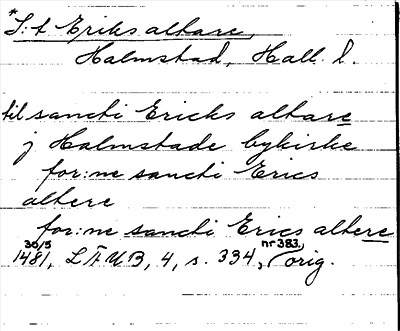 *S:t Eriks altare,
Halmstad, Hall. l.
til sancti Ericks altare
j Halmstade bykirke
for:ne sancti Erics
altere
for:ne sancti Erics altere
30/5 1481, LÄUB, 4, s. 334, nr 383, orig.